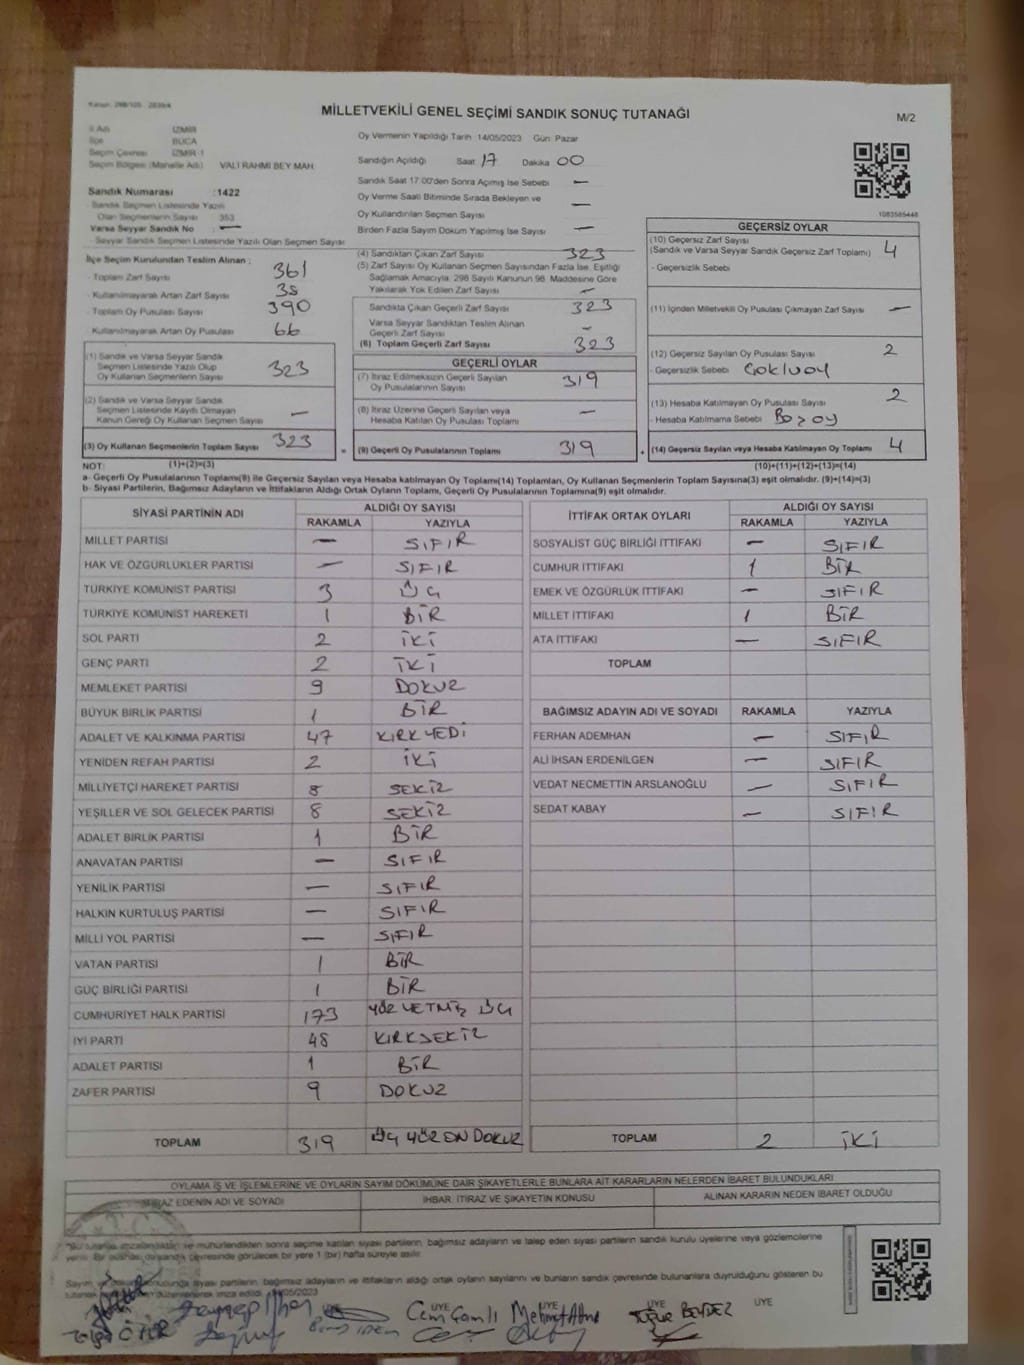 Kanun: 298/105
MİLLETVEKİLİ GENEL SEÇİMİ SANDIK SONUÇ TUTANAĞI
M/2
İl Adı İZMİR
İlçe BUCA
Seçim Çevresi İZMİR-1
Seçim Bölgesi (Mahalle Adı) VALİ RAHMİ BEY MAH.
Sandık Numarası : 1422
Sandık Seçmen Listesinde Yazılı
Olan Seçmenlerin Sayısı 353
Varsa Seyyar Sandık No : —
- Seyyar Sandık Seçmen Listesinde Yazılı Olan Seçmen Sayısı
Oy Vermenin Yapıldığı Tarih 14/05/2023 Gün Pazar
Sandığın Açıldığı Saat 17 Dakika 00
Sandık Saat 17:00'den Sonra Açılmış İse Sebebi —
Oy Verme Saati Bitiminde Sırada Bekleyen ve
Oy Kullandırılan Seçmen Sayısı —
Birden Fazla Sayım Döküm Yapılmış İse Sayısı —
1083585448
İlçe Seçim Kurulundan Teslim Alınan :
- Toplam Zarf Sayısı 361
- Kullanılmayarak Artan Zarf Sayısı 38
- Toplam Oy Pusulası Sayısı 390
- Kullanılmayarak Artan Oy Pusulası 66
(1) Sandık ve Varsa Seyyar Sandık
Seçmen Listesinde Yazılı Olup
Oy Kullanan Seçmenlerin Sayısı 323
(2) Sandık ve Varsa Seyyar Sandık
Seçmen Listesinde Kayıtlı Olmayan
Kanun Gereği Oy Kullanan Seçmen Sayısı —
(3) Oy Kullanan Seçmenlerin Toplam Sayısı 323
(1)+(2)=(3)
(4) Sandıktan Çıkan Zarf Sayısı 323
(5) Zarf Sayısı Oy Kullanan Seçmen Sayısından Fazla İse, Eşitliği
Sağlamak Amacıyla, 298 Sayılı Kanunun 98. Maddesine Göre
Yakılarak Yok Edilen Zarf Sayısı —
Sandıkta Çıkan Geçerli Zarf Sayısı 323
Varsa Seyyar Sandıktan Teslim Alınan
Geçerli Zarf Sayısı —
(6) Toplam Geçerli Zarf Sayısı 323
GEÇERLİ OYLAR
(7) İtiraz Edilmeksizin Geçerli Sayılan
Oy Pusulalarının Sayısı 319
(8) İtiraz Üzerine Geçerli Sayılan veya
Hesaba Katılan Oy Pusulası Toplamı —
= (9) Geçerli Oy Pusulalarının Toplamı 319
GEÇERSİZ OYLAR
(10) Geçersiz Zarf Sayısı
(Sandık ve Varsa Seyyar Sandık Geçersiz Zarf Toplamı) 4
- Geçersizlik Sebebi
(11) İçinden Milletvekili Oy Pusulası Çıkmayan Zarf Sayısı —
(12) Geçersiz Sayılan Oy Pusulası Sayısı 2
- Geçersizlik Sebebi Çokluoy
(13) Hesaba Katılmayan Oy Pusulası Sayısı 2
- Hesaba Katılmama Sebebi Bozoy
+ (14) Geçersiz Sayılan veya Hesaba Katılmayan Oy Toplamı 4
(10)+(11)+(12)+(13)=(14)
NOT:
a- Geçerli Oy Pusulalarının Toplamı(9) ile Geçersiz Sayılan veya Hesaba katılmayan Oy Toplamı(14) Toplamları, Oy Kullanan Seçmenlerin Toplam Sayısına(3) eşit olmalıdır. (9)+(14)=(3)
b- Siyasi Partilerin, Bağımsız Adayların ve İttifakların Aldığı Ortak Oyların Toplamı, Geçerli Oy Pusulalarının Toplamına(9) eşit olmalıdır.
SİYASİ PARTİNİN ADI ALDIĞI OY SAYISI
RAKAMLA YAZIYLA
MİLLET PARTİSİ — SIFIR
HAK VE ÖZGÜRLÜKLER PARTİSİ — SIFIR
TÜRKİYE KOMÜNİST PARTİSİ 3 ÜÇ
TÜRKİYE KOMÜNİST HAREKETİ 1 BİR
SOL PARTİ 2 İKİ
GENÇ PARTİ 2 İKİ
MEMLEKET PARTİSİ 9 DOKUZ
BÜYÜK BİRLİK PARTİSİ 1 BİR
ADALET VE KALKINMA PARTİSİ 47 KIRK YEDİ
YENİDEN REFAH PARTİSİ 2 İKİ
MİLLİYETÇİ HAREKET PARTİSİ 8 SEKİZ
YEŞİLLER VE SOL GELECEK PARTİSİ 8 SEKİZ
ADALET BİRLİK PARTİSİ 1 BİR
ANAVATAN PARTİSİ — SIFIR
YENİLİK PARTİSİ — SIFIR
HALKIN KURTULUŞ PARTİSİ — SIFIR
MİLLİ YOL PARTİSİ — SIFIR
VATAN PARTİSİ 1 BİR
GÜÇ BİRLİĞİ PARTİSİ 1 BİR
CUMHURİYET HALK PARTİSİ 173 YÜZ YETMİŞ ÜÇ
İYİ PARTİ 48 KIRKSEKİZ
ADALET PARTİSİ 1 BİR
ZAFER PARTİSİ 9 DOKUZ
TOPLAM 319 ÜÇ YÜZ ON DOKUZ
İTTİFAK ORTAK OYLARI ALDIĞI OY SAYISI
RAKAMLA YAZIYLA
SOSYALİST GÜÇ BİRLİĞİ İTTİFAKI — SIFIR
CUMHUR İTTİFAKI 1 BİR
EMEK VE ÖZGÜRLÜK İTTİFAKI — SIFIR
MİLLET İTTİFAKI 1 BİR
ATA İTTİFAKI — SIFIR
TOPLAM
BAĞIMSIZ ADAYIN ADI VE SOYADI RAKAMLA YAZIYLA
FERHAN ADEMHAN — SIFIR
ALİ İHSAN ERDENİLGEN — SIFIR
VEDAT NECMETTİN ARSLANOĞLU — SIFIR
SEDAT KABAY — SIFIR
TOPLAM 2 İKİ
OYLAMA İŞ VE İŞLEMLERİNE VE OYLARIN SAYIM DÖKÜMÜNE DAİR ŞİKAYETLERLE BUNLARA AİT KARARLARIN NELERDEN İBARET BULUNDUKLARI
İTİRAZ EDENİN ADI VE SOYADI İHBAR, İTİRAZ VE ŞİKAYETİN KONUSU ALINAN KARARIN NEDEN İBARET OLDUĞU
*Bu tutanak imzalandıktan ve mühürlendikten sonra seçime katılan siyasi partilerin, bağımsız adayların ve talep eden siyasi partilerin sandık kurulu üyelerine veya gözlemcilerine
verilir. Bir nüshası da sandık çevresinde görülecek bir yere 1 (bir) hafta süreyle asılır.
Sayım ve döküm sonucunda siyasi partilerin, bağımsız adayların ve ittifakların aldığı ortak oyların sayılarını ve bunların sandık çevresinde bulunanlara duyrulduğunu gösteren bu
tutanak düzenlenerek imza edildi. 14/05/2023
ÜYE ÜYE ÜYE ÜYE
Zeynep Cem Çamlı Mehmet